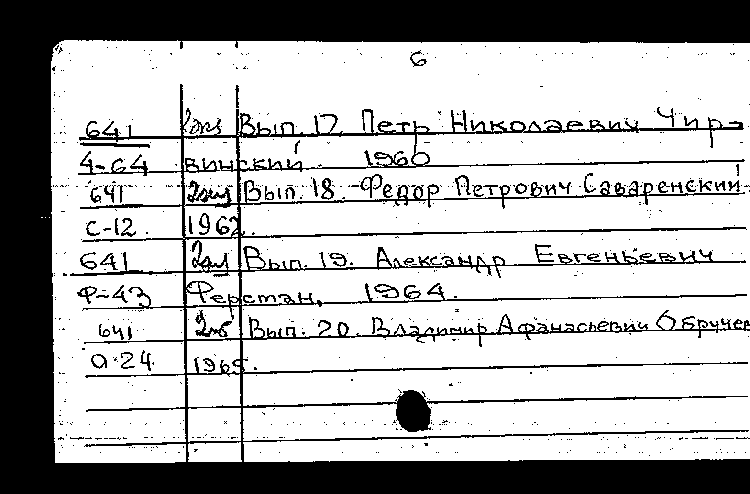 6
641 2экз Вып. 17. Петр Николаевич Чир-
Ч-64 винский 1960
641 2экз Вып. 18. Федор Петрович Саваренский
С-12. 1962.
641 2экз Вып. 19. Александр Евгеньевич
Ф-43 Ферсман, 1964.
641 Вып. 20. Владимир Афанасьевич Обручев
О-24 1965.